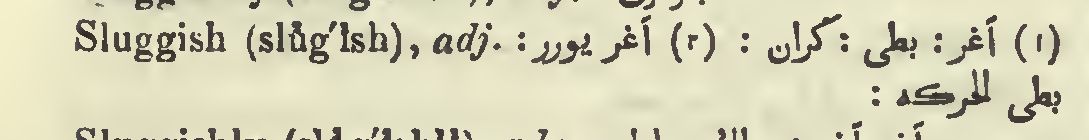 Sluggish (slŭg′ĭsh), adj. (١) آغر : بطی : كران : (٢) آغر یورر :
بطی الحركه :